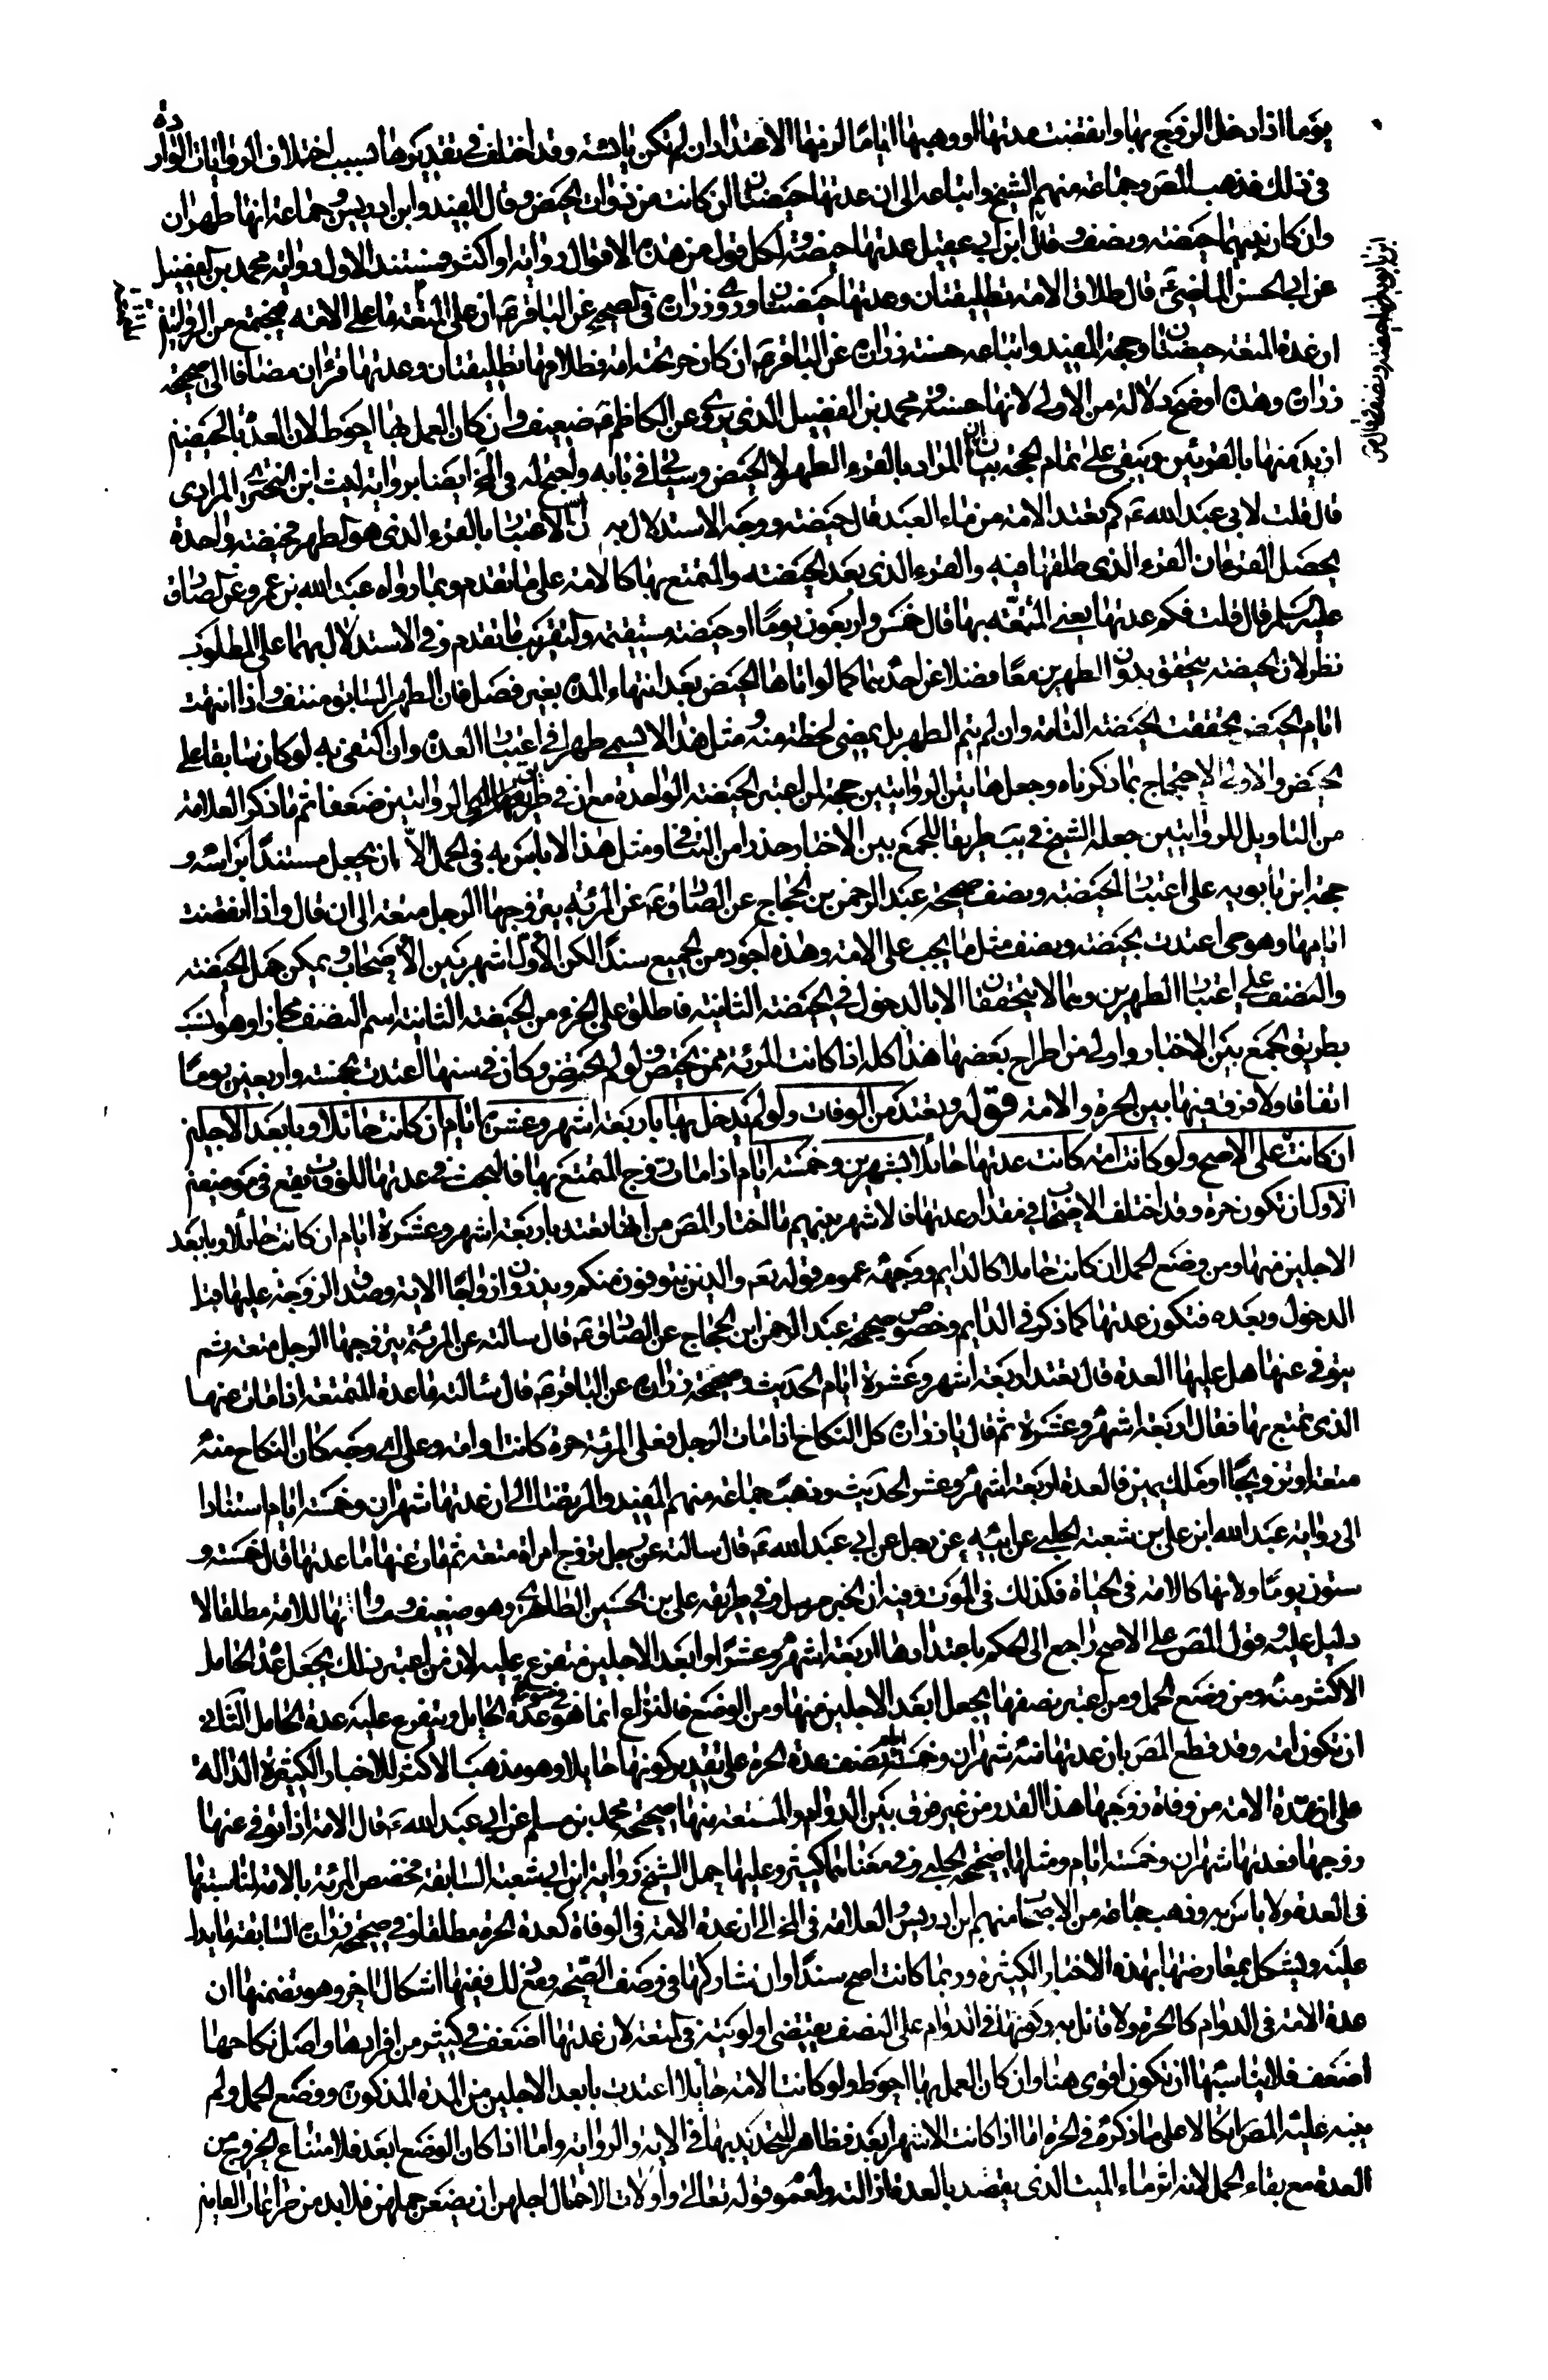 يوما اذا دخل الزوج بها وانقضت مدتها او وهبها اياما لزمها الاعتداد ان لم تكن يائسة وقد اختلف في تقديرها بسبب اختلاف الروايات الوار
ده
في ذلك فذهب المص وجماعة منهم الشيخ واتباعه الى ان عدتها حيضتان ان كانت من ذوات الحيض وقال المفيد وابن ادريس وجماعة انها طهران
وقال ابن ابي عقيل عدتها حيضة ولكل قول من هذه الاقوال رواية او اكثر فمستند الاول رواية محمد بن الفضيل
عن ابي الحسن الماضي ع قال طلاق الامة تطليقتان وعدتها حيضتان وروى زرارة في الصحيح عن الباقر ع ان على المتعة ما على الامة فيجتمع من الروايتين
ان عدة المتعة حيضتان وحجة المفيد واتباعه حسنة زرارة عن الباقر ع ان كان حر تحته امة فطلاقها تطليقتان وعدتها قرءان مضافا الى صحيحة
زرارة وهذه اوضح دلالة من الاولى لانها حسنة ومحمد بن الفضيل الذي يروي عن الكاظم ع ضعيف وان كان العمل بها احوط لان العدة بالحيضتين
ازيد منها بالقرئين ويبقى على تمام الحجة بيان ان المراد بالقرء الطهر لا الحيض وسياتي في بابه واحتج له في المخ ايضا برواية ليث ابن البختري المرادي
قال قلت لابي عبد الله ع كم تعتد الامة من ماء العبد قال حيضة ووجه الاستدلال به ان الاعتبار بالقرء الذي هو الطهر فبحيضة واحدة
يحصل القرءان القرء الذي طلقها فيه والقرء الذي بعد الحيضة والمتمتع بها كالامة على ما تقدم وبما رواه عبد الله بن عمرو عن الصادق
عليه السلم قال قلت فكم عدتها يعني المتمتعة بها قال خمس واربعون يوما او حيضة مستقيمة والتقريب ما تقدم وفي الاستدلال بهما على المطلوب
نظر لان الحيضة تتحقق بدون الطهرين معا فضلا عن احدهما كما لو اتاها الحيض بعد انتهاء المدة بغير فصل فان الطهر السابق منتف واذا انتهت
ايام الحيض تحققت الحيضة التامة وان لم يتم الطهر بل بمضي لحظة منه ومثل هذا لا يسمى طهرا في اعتبار العدة وان اكتفى به لو كان سابقا على
الحيض والاولى الاحتجاج بما ذكرناه وجعل هاتين الروايتين حجة لمن اعتبر الحيضة الواحدة مع ان في طريق الروايتين ضعفا ثم ما ذكر العلامة
من التاويل للروايتين جعله الشيخ في يب طريقا للجمع بين الاخبار حذرا من التنافي ومثل هذا لا باس به في الحمل الا ان يجعل مستندا براسه و
حجة ابن بابويه على اعتبار الحيضة ونصف صحيحة عبد الرحمن بن الحجاج عن الصادق ع عن المرئة يتزوجها الرجل متعة الى ان قال واذا انقضت
ايامها وهو حي اعتدت بحيضة ونصف مثل ما يجب على الامة وهذه اجود من الجميع سندا لكن الاول اشهر بين الاصحاب ويمكن حمل الحيضة
والنصف على اعتبار الطهرين وهما لا يتحققان الا بالدخول في الحيضة الثانية فاطلق على الجزء من الحيضة الثانية اسم النصف مجازا وهو انسب
بطريق الجمع بين الاخبار واولى من اطراح بعضها هذا كله اذا كانت المرئة ممن تحيض فلو لم تحض وكان في سنها اعتدت بخمسة واربعين يوما
اتفاقا ولا فرق فيها بين الحرة والامة قوله وتعتد من الوفات ولو لم يدخل بها باربعة اشهر وعشرة ايام ان كانت حائلا وبابعد الاجلين
ان كانت على الاصح ولو كانت امة كانت عدتها حائلا شهرين وخمسة ايام اذا مات زوج المتمتع بها فالبحث في عدتها للوفات يقع في موضعين
الاول ان تكون حرة وقد اختلف الاصحاب في مقدار عدتها فالاشهر بينهم ما اختار المص من انها تعتد باربعة اشهر وعشرة ايام ان كانت حائلا وبابعد
الاجلين منها ومن وضع الحمل ان كانت حاملا كالدايم ووجهه عموم قوله تعه والذين يتوفون منكم ويذرون ازواجا الاية وصدق الزوجة عليها قبل
الدخول وبعده فتكون عدتها كما ذكر في الدايم وخصوص صحيحة عبد الرحمن ابن الحجاج عن الصادق ع قال سالته عن المرئة يتزوجها الرجل متعة ثم
يتوفى عنها هل عليها العدة قال تعتد اربعة اشهر وعشرة ايام الحديث وصحيحة زرارة عن الباقر ع قال سالته ما عدة المتمتعة اذا مات عنها
الذي تمتع بها فقال اربعة اشهر وعشرة ثم قال يا زرارة كل النكاح اذا مات الرجل فعلى المرئة حرة كانت او امة وعلى اي وجه كان النكاح منه
متعة او تزويجا او ملك يمين فالعدة اربعة اشهر وعشر الحديث وذهب جماعة منهم المفيد والمرتضى الى ان عدتها شهران وخمسة ايام استنادا
الى رواية عبد الله ابن علي بن شعبة الحلبي عن ابيه عن رجل عن ابي عبد الله ع قال سالته عن رجل تزوج امراة متعة ثم مات عنها ما عدتها قال خمسة و
ستون يوما ولانها كالامة في الحياة فكذلك في الموت وفيه ان الخبر مرسل وفي طريقه علي بن الحسن الطاطري وهو ضعيف ومساواتها للامة مطلقا لا
دليل عليه وقول المص على الاصح راجع الى الحكم باعتدادها اربعة اشهر وعشرا او ابعد الاجلين متفرع عليه لان من اعتبر ذلك يجعل عدة الحامل
الاكثر منه ومن وضع الحمل ومن اعتبر نصفها يجعل ابعد الاجلين منها ومن الوضع فالنزاع انما هو في عدة الحايل ويتفرع عليه عدة الحامل الثاني
ان تكون امة وقد قطع المص بان عدتها منه شهران وخمسة ايام نصف عدة الحرة على تقدير كونها حايلا وهو مذهب الاكثر للاخبار الكثيرة الدالة
على ان عدة الامة من وفاة زوجها هذا القدر من غير فرق بين الدوام والمتعة منها صحيحة محمد بن مسلم عن ابي عبد الله ع قال الامة اذا توفي عنها
زوجها فعدتها شهران وخمسة ايام ومثلها صحيحة الحلبي وفي معناهما كثير وعليها حمل الشيخ رواية ابن ابي شعبة السابقة مخصص المرئة بالامة لمناسبتها
في العدة ولا باس به وذهب جماعة من الاصحاب منهم ابن ادريس والعلامة في المخ الى ان عدة الامة في الوفاة كعدة الحرة مطلقا وفي صحيحة زرارة السابقة ما يدل
عليه ويشكل بمعارضتها بهذه الاخبار الكثيرة وربما كانت اصح سندا وان تشاركها في وصف الصحة ومع ذلك ففيها اشكال اخر وهو تضمنها ان
عدة الامة في الدوام كالحرة ولا قائل به وكونها في الدوام على النصف يقتضي اولوية في المتعة لان عدتها اضعف في كثير من افرادها واصل نكاحها
اضعف فلا يناسبها ان تكون اقوى هنا وان كان العمل بها احوط ولو كانت الامة حاملا اعتدت بابعد الاجلين من المدة المذكورة ووضع الحمل ولم
ينبه عليه المص اتكالا على ما ذكره في الحرة اما اذا كانت الاشهر ابعد فظاهر للتحديد بها في الاية والرواية واما اذا كان الوضع ابعد فلامتناع الخروج من
العدة مع بقاء الحمل لانه اثر ماء الميت الذي يقصد بالعدة ازالته ولعموم قوله تعالى واولات الاحمال اجلهن ان يضعن حملهن فلا بد من مراعات الغايتين
وقال ابن بابويه انها حيضة ونصف